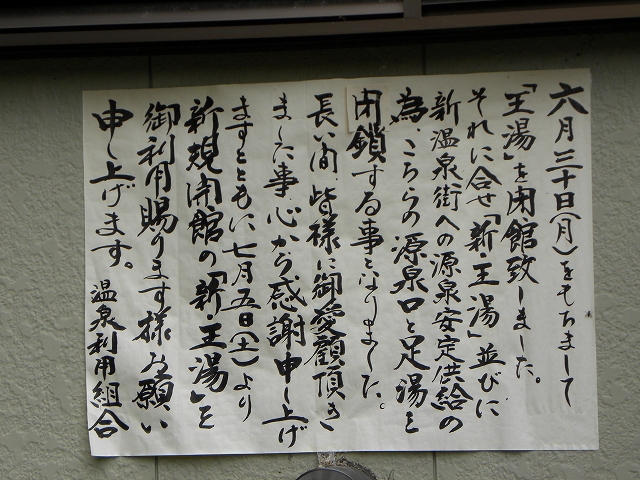 六月三十日(月)をもちまして
「王湯」を閉館致しました。
それに合せ「新・王湯」並びに
新温泉街への源泉安定供給の
為、こちらの源泉口と足湯を
閉鎖する事となりました。
長い間、皆様に御愛顧頂き
ました事、心から感謝申し上げ
ますとともに七月五日(土)より
新規開館の「新王湯」を
御利用賜ります様お願い
申し上げます。
温泉利用組合